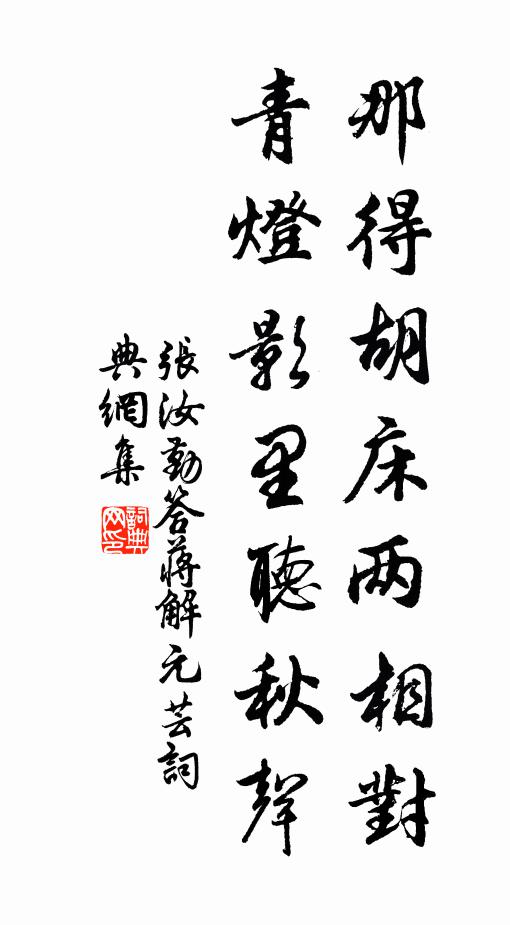 那得胡床两相對
青燈影里聽秋聲
張汝勤答蔣解元芸詞
典網集
詞典網印